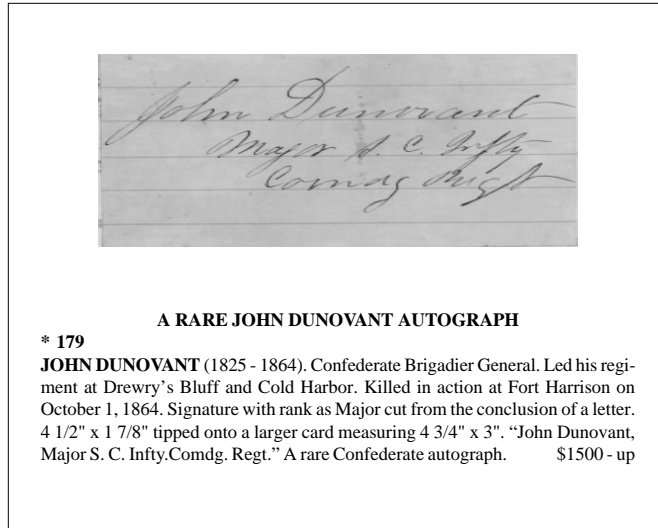 John Dunovant
Major S. C. Infty
Comdg Regt
A RARE JOHN DUNOVANT AUTOGRAPH
* 179
JOHN DUNOVANT (1825 - 1864). Confederate Brigadier General. Led his regi-
ment at Drewry’s Bluff and Cold Harbor. Killed in action at Fort Harrison on
October 1, 1864. Signature with rank as Major cut from the conclusion of a letter.
4 1/2" x 1 7/8" tipped onto a larger card measuring 4 3/4" x 3". “John Dunovant,
Major S. C. Infty.Comdg. Regt.” A rare Confederate autograph. $1500 - up